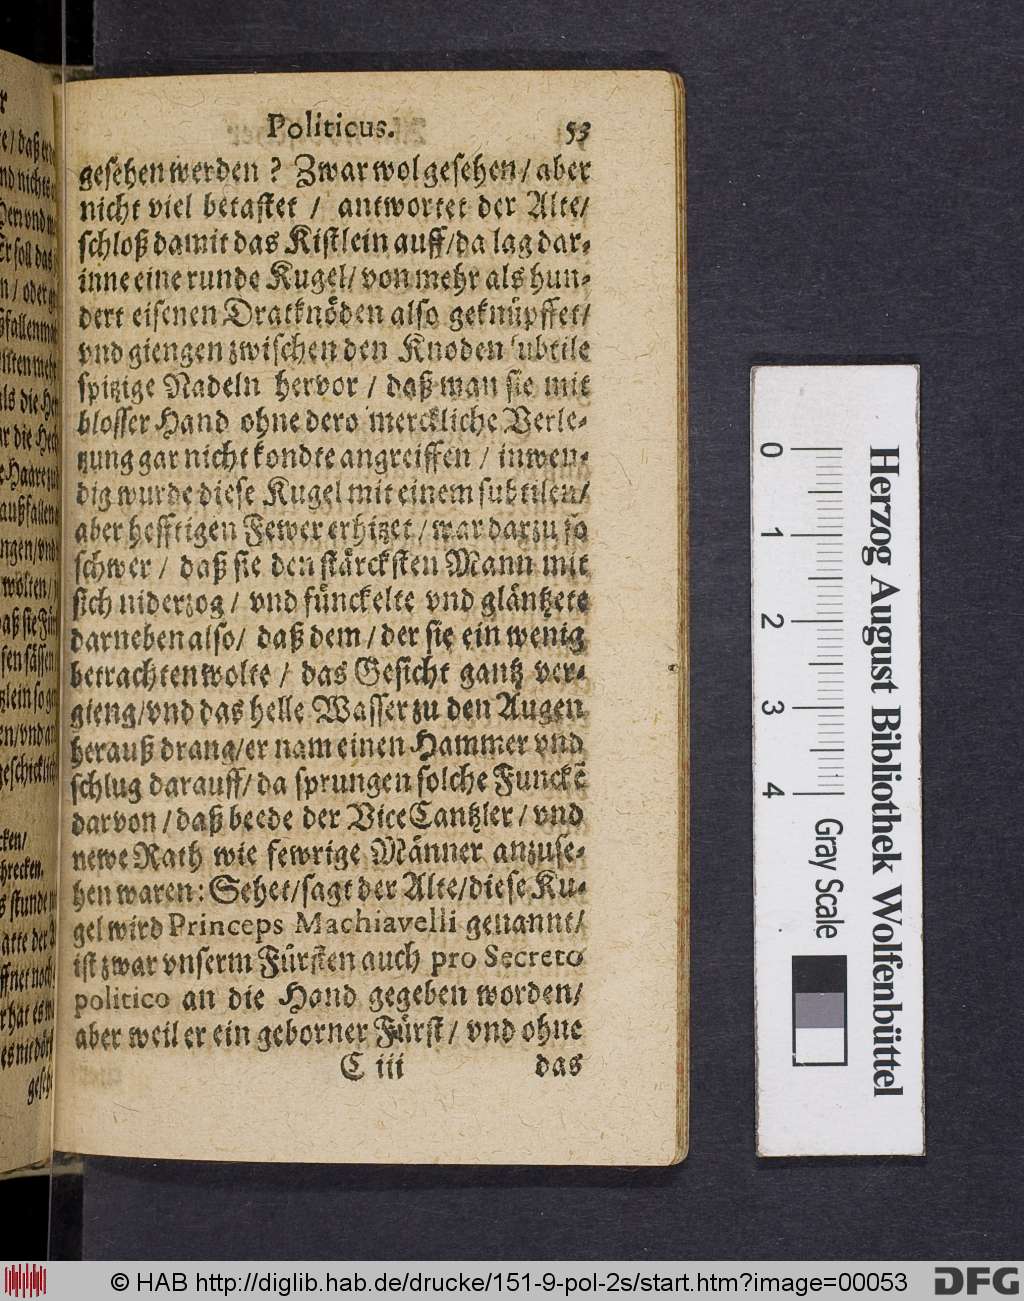 Politicus. 53
gesehen werden ? Zwar wol gesehen / aber
nicht viel betastet / antwortet der Alte/
schloß damit das Kistlein auff/da lag dar-
inne eine runde Kugel/ von mehr als hun-
dert eisenen Dratknöden also geknüpffet/
vnd giengen zwischen den Knoden subtile
spitzige Nadeln hervor / daß man sie mit
blosser Hand ohne dero merckliche Verle-
tzung gar nicht kondte angreiffen / inwen-
dig wurde diese Kugel mit einem subtilen/
aber hefftigen Fewer erhitzet / war darzu so
schwer / daß sie den stärcksten Mann mit
sich niderzog / vnd fünckelte vnd gläntzete
darneben also/ daß dem / der sie ein wenig
betrachten wolte / das Gesicht gantz ver-
gieng/vnd das helle Wasser zu den Augen
herauß drang/er nam einen Hammer vnd
schlug darauff/da sprungen solche Funckē
darvon / daß beede der ViceCantzler / vnd
newe Rath wie fewrige Männer anzuse-
hen waren: Sehet/sagt der Alte/diese Ku-
gel wird Princeps Machiavelli genannt/
ist zwar vnserm Fürsten auch pro Secreto
politico an die Hand gegeben worden/
aber weil er ein geborner Fürst / vnd ohne
C iii das
0 1 2 3 4 Gray Scale
Herzog August Bibliothek Wolfenbüttel
© HAB http://diglib.hab.de/drucke/151-9-pol-2s/start.htm?image=00053
DFG